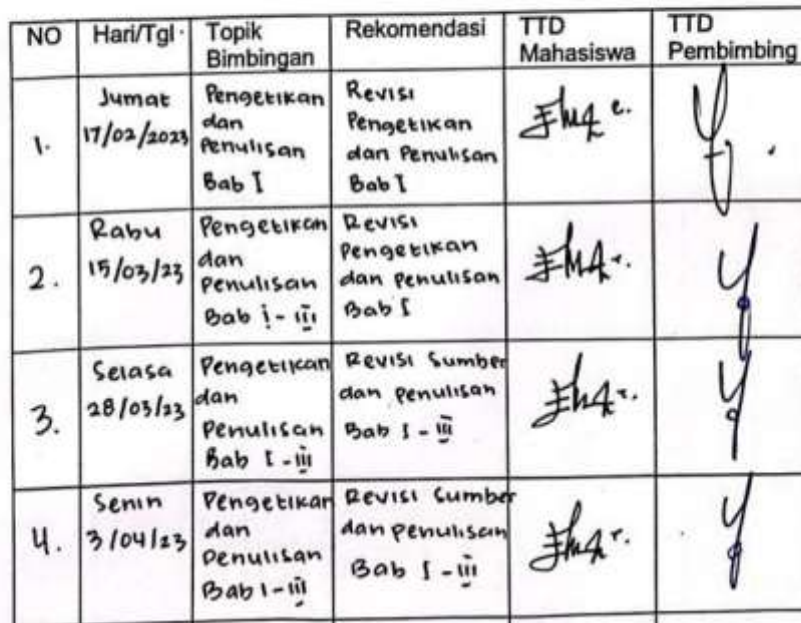 NO Hari/Tgl Topik Bimbingan Rekomendasi TTD Mahasiswa TTD Pembimbing
1.
Jumat
17/02/2023
Pengetikan
dan
Penulisan
Bab I
Revisi
Pengetikan
dan Penulisan
Bab I
2.
Rabu
15/03/23
Pengetikan
dan
Penulisan
Bab I - III
Revisi
Pengetikan
dan penulisan
Bab I
3.
Selasa
28/03/23
Pengetikan
dan
Penulisan
Bab I - III
Revisi Sumber
dan penulisan
Bab I - III
4.
Senin
3/04/23
Pengetikan
dan
Penulisan
Bab I - III
Revisi Sumber
dan penulisan
Bab I - III